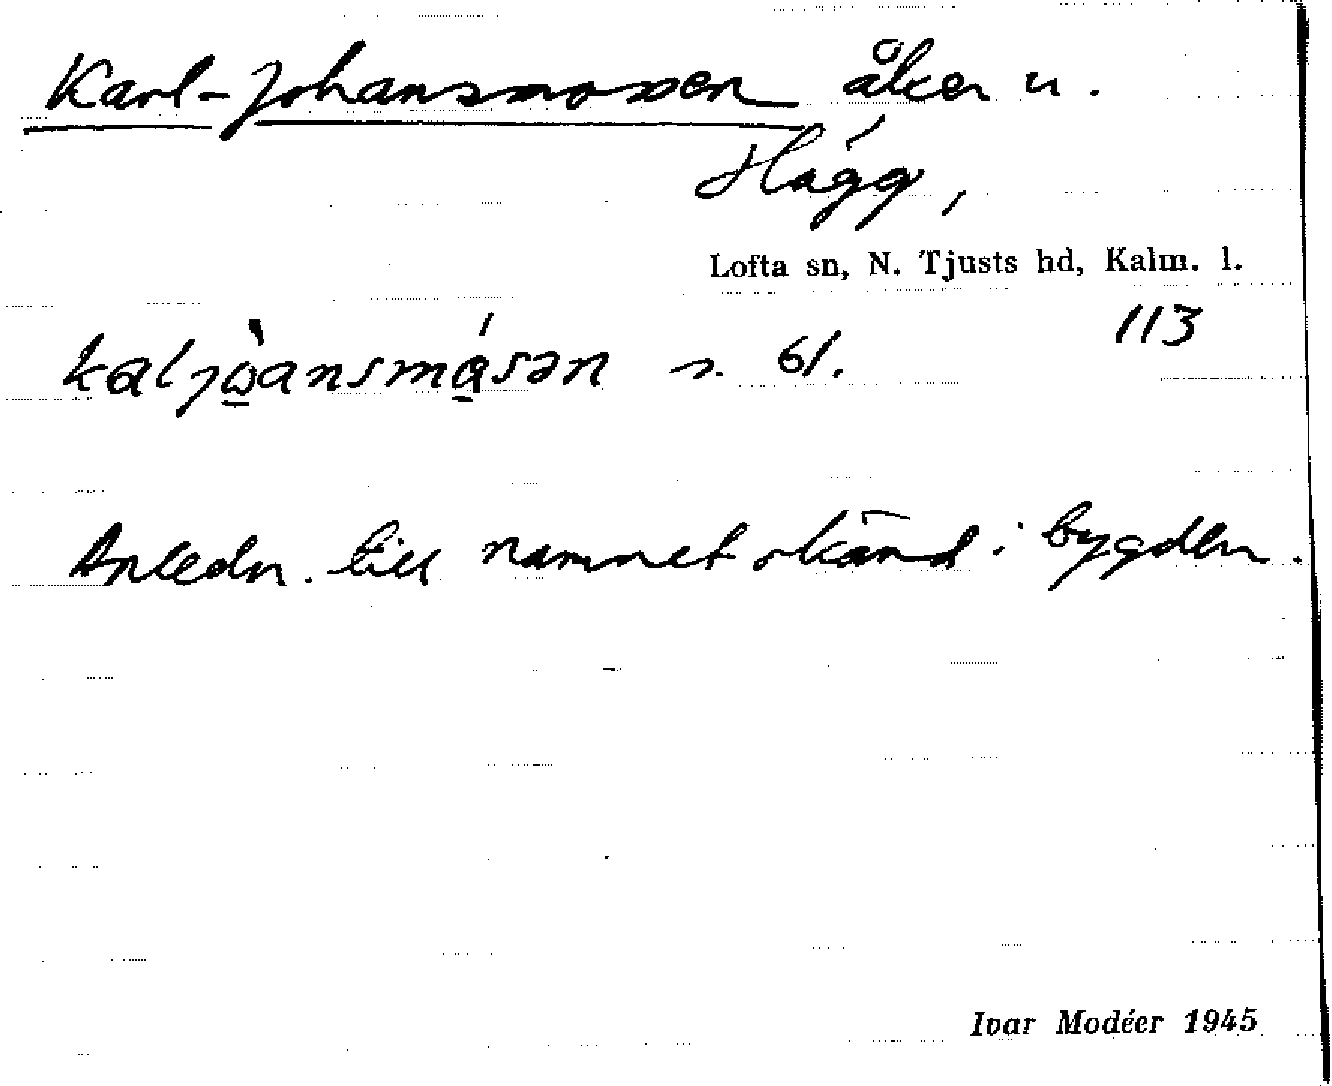 Karl-Johansmossen åker u.
Hägg,
Lofta sn, N. Tjusts hd, Kalm. l.
113
kaljo̱̊̀ansmǻ̱sən s. 61.
Anledn. till namnet okänd i bygden.
Ivar Modéer 1945